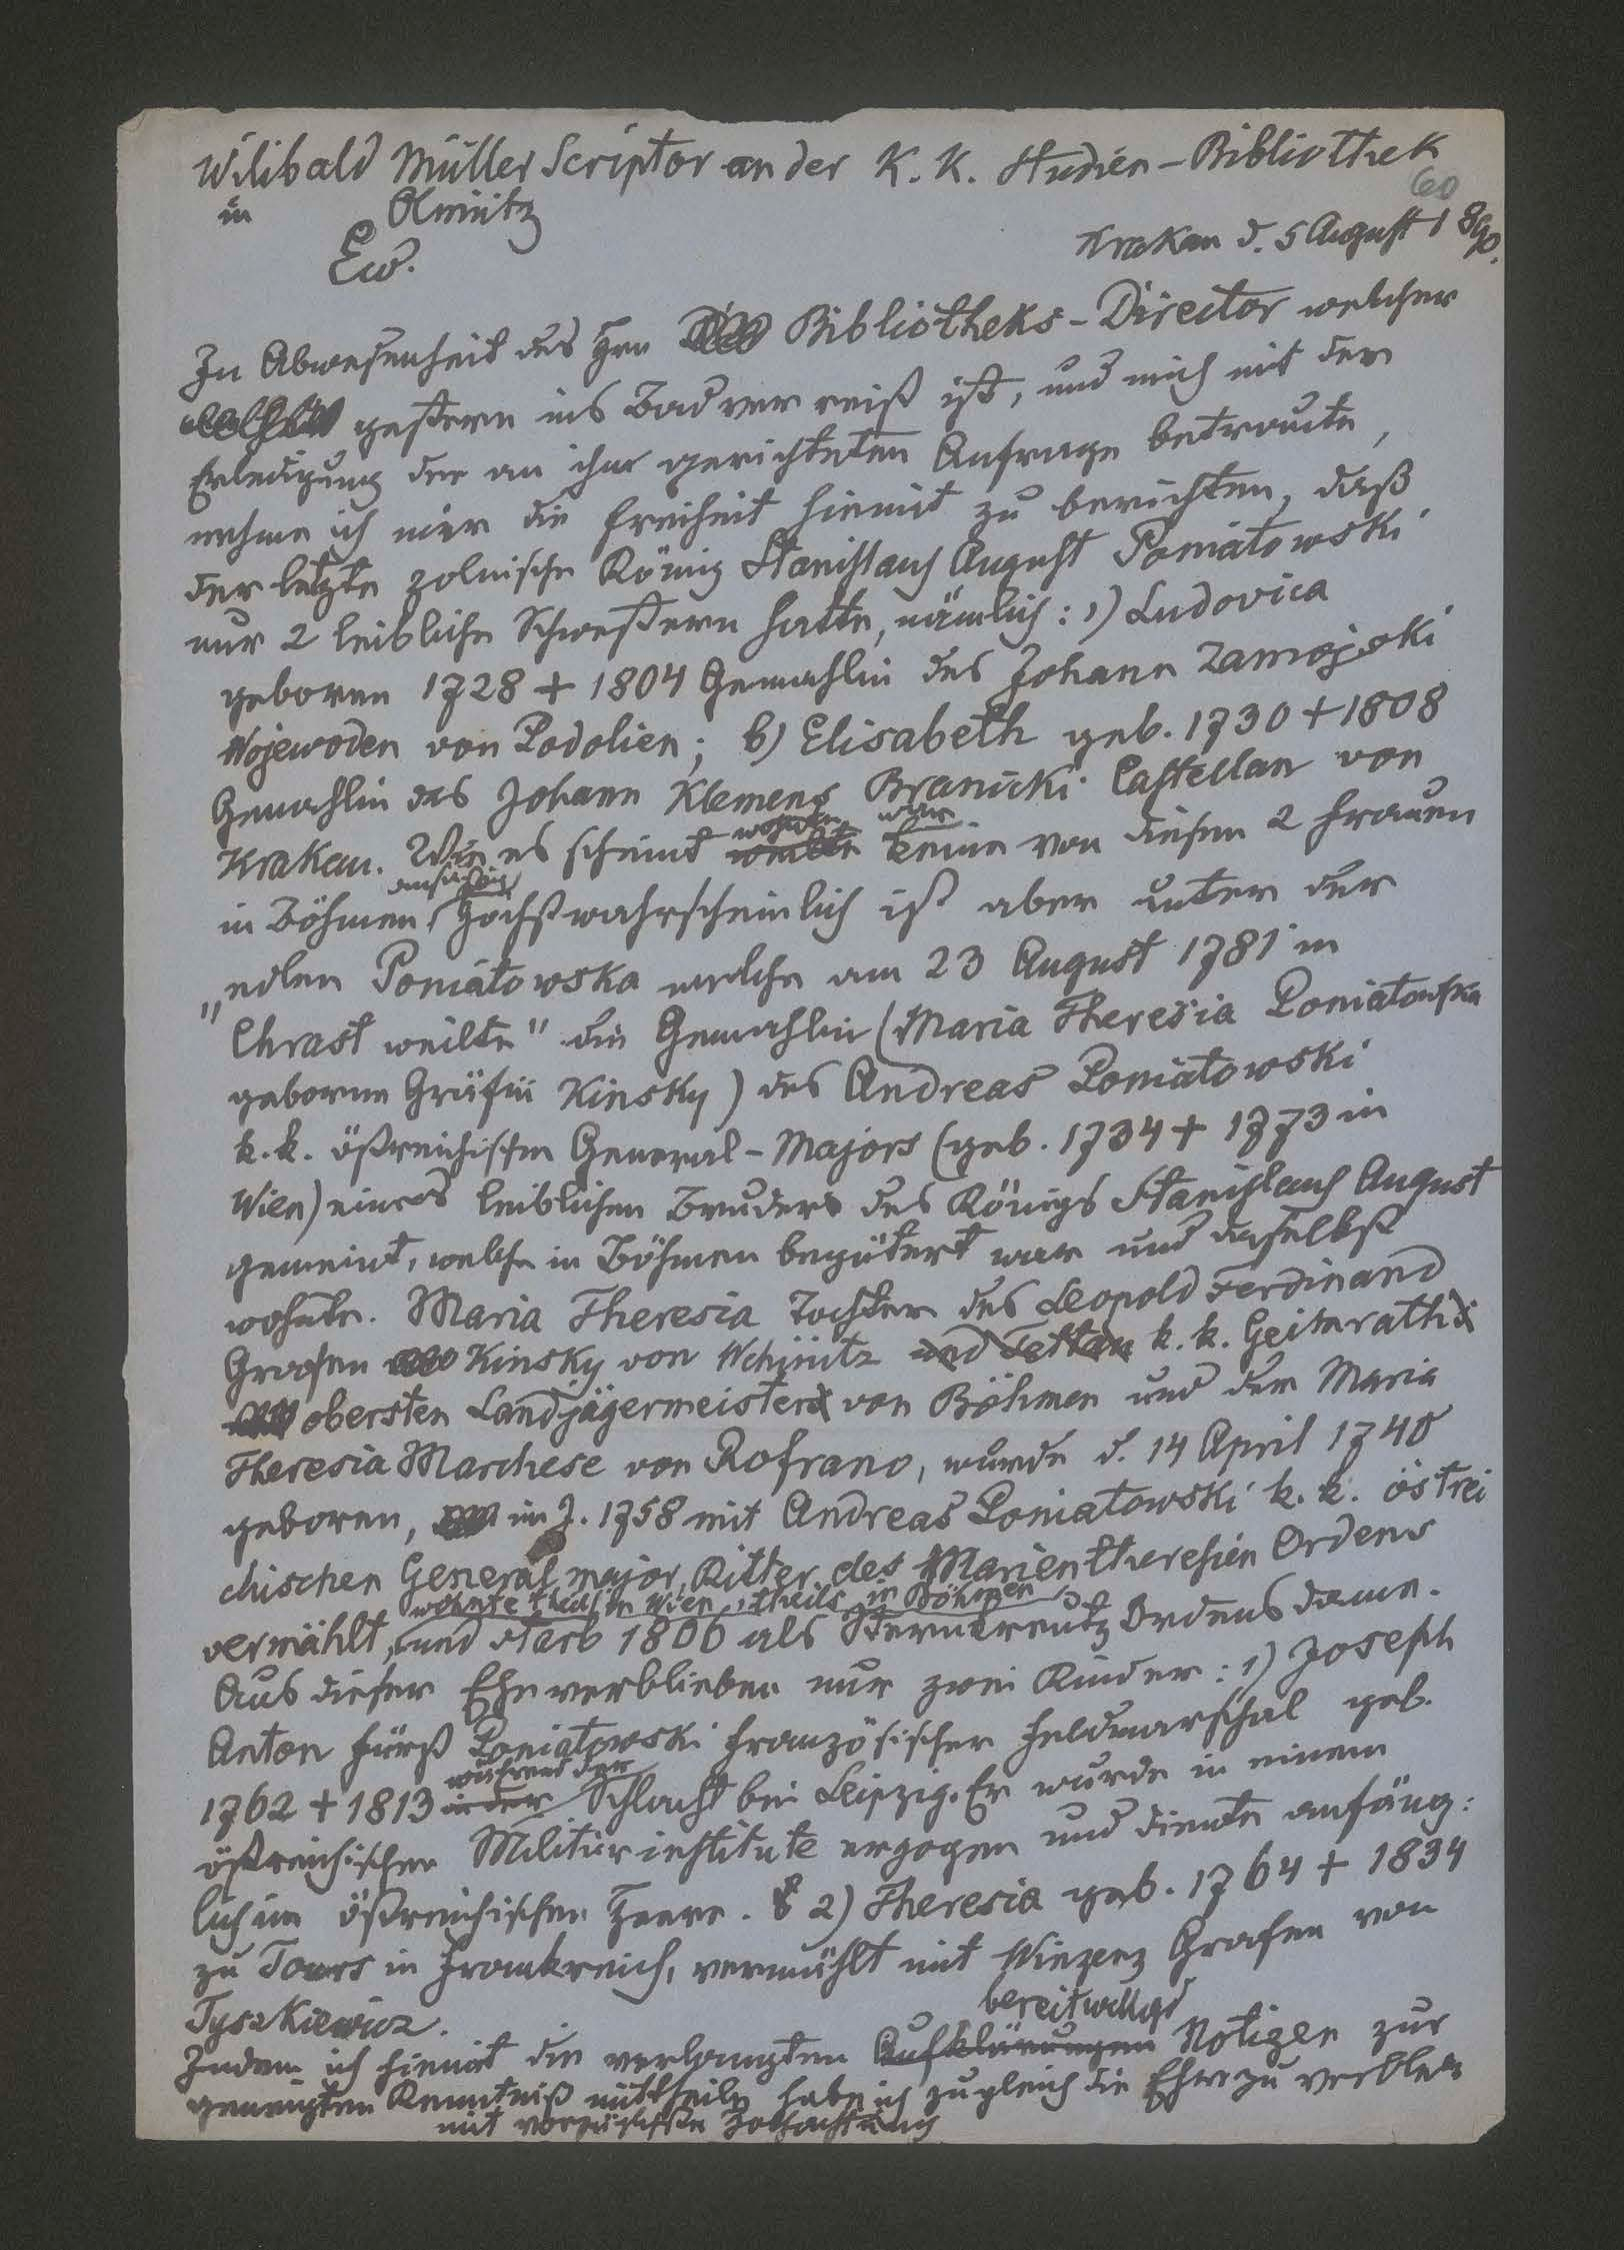 Wilibald Müller Scriptor an der K. K. Studien-Bibliothek
in Olmütz
60
Krakau d. 5 August 1890.
Ew.
In Abwesenheit des Hrn Bibliotheks-Director welcher
gestern ins Bad verreist ist, und mich mit der
Erledigung der an ihn gerichteten Anfrage betraute,
nehme ich mir die Freiheit hiemit zu berichten, daß
der letzte polnische König Stanislaus August Poniatowski
nur 2 leibliche Schwestern hatte, nämlich: 1) Ludovica
geboren 1728 + 1804 Gemahlin des Johann Zamojski
Wojewoden von Podolien; b) Elisabeth geb. 1730 + 1808
Gemahlin des Johann Klemens Branicki Castellan von
Krakau. Wie es scheint war keine von diesen 2 Frauen
in Böhmen ansäßig. Höchstwahrscheinlich ist aber unter der
"edlen Poniatowska welche am 23 August 1781 in
Chrast weilte" die Gemahlin (Maria Theresia Poniatowska
geborne Gräfin Kinsky) des Andreas Poniatowski
k. k. östreichischen General-Majors (geb. 1734 + 1773 in
Wien) eines leiblichen Bruders des Königs Stanislaus August
gemeint, welche in Böhmen begütert war und daselbst
wohnte. Maria Theresia Tochter des Leopold Ferdinand
Grafen Kinsky von Wchinitz und Tettau k. k. Geimrath
obersten Landjägermeister von Böhmen und der Maria
Theresia Marchese von Rofrano, wurde d. 14 April 1740
geboren, im J. 1758 mit Andreas Poniatowski k. k. östrei
chischen General major, Ritter des Marientheresien Ordens
vermählt, wohnte theils in Wien, theils in Böhmen und starb 1806 als Sternkreutz Ordensdame.
Aus dieser Ehe verblieben nur zwei Kinder: 1) Joseph
Anton Fürst Poniatowski französischer Feldmarschal geb.
1762 + 1813 in der während der Schlacht bei Leipzig. Er wurde in einem
östreichischen Militärinstitute erzogen und diente anfäng:
lich im östreichischen Heere. 2) Theresia geb. 1764 + 1834
zu Tours in Frankreich, vermählt mit Winzenz Grafen von
Tyszkiewicz.
Indem ich hiemit die verlangten Aufklärungen bereitwilligst Notizen zur
geneigten Kenntniß mittheile habe ich zugleich die Ehre zu verbleib
mit vorzüglichster Hochachtung